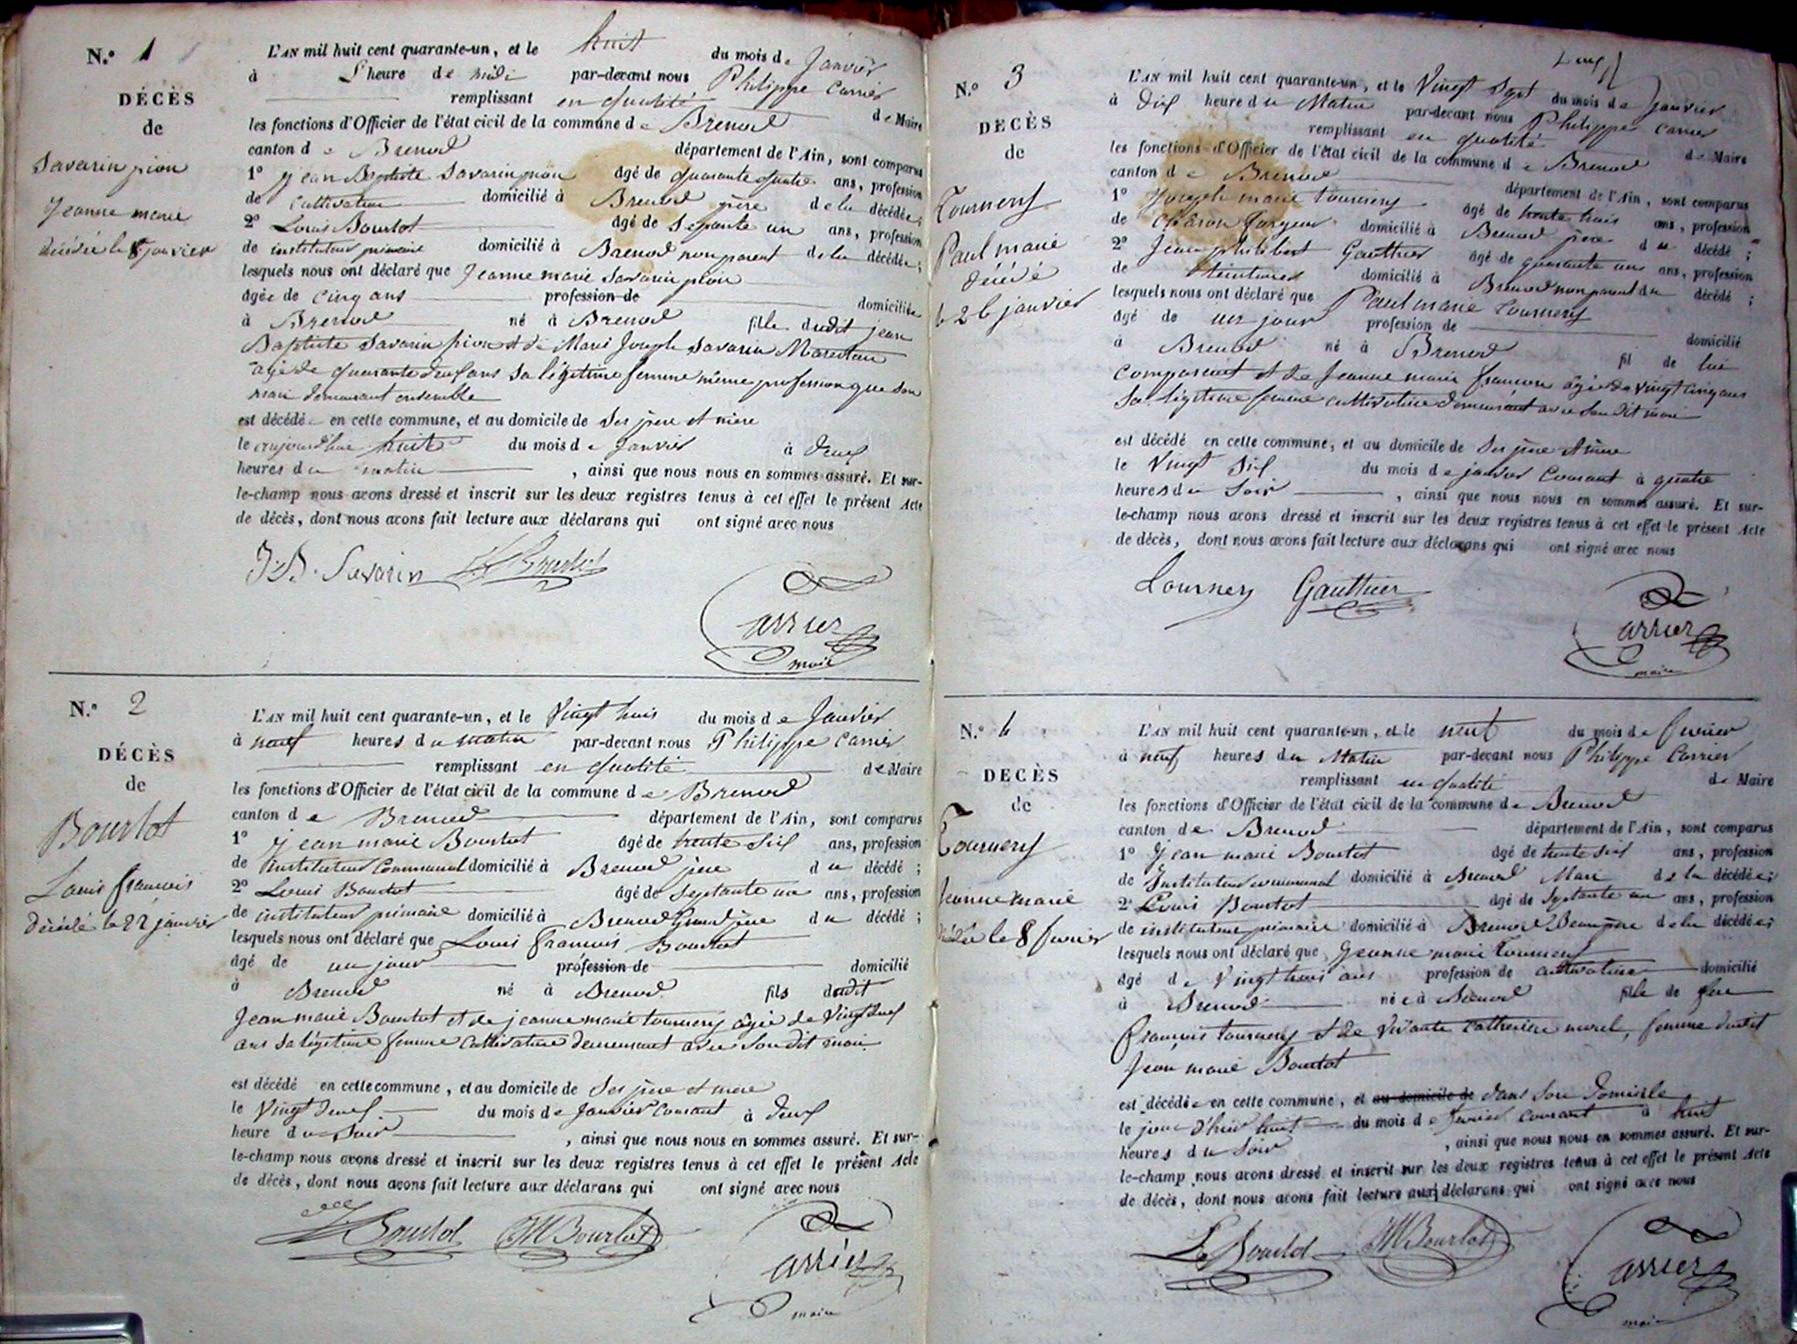 N.° 1
DÉCÈS
de
Savarin pion
Jeanne marie
décédée le 8 janvier
L'AN mil huit cent quarante-un, et le huit du mois de Janvier
à L'heure de midi par-devant nous Philippe Carrier
remplissant en qualité de Maire
les fonctions d'Officier de l'état civil de la commune de Brenod
canton de Brenod département de l'Ain, sont comparus
1° Jean Baptiste Savarin pion âgé de quarante quatre ans, profession
de cultivateur domicilié à Brenod père de la décédée;
2° Louis Bourlot âgé de septante un ans, profession
de instituteur primaire domicilié à Brenod non parent de la décédée;
lesquels nous ont déclaré que Jeanne marie Savarin pion
âgée de cinq ans profession de domiciliée
à Brenod né à Brenod fille dudit jean
Baptiste Savarin pion et de Marie Joseph Savarin
âgée de quarante deux ans sa légitime femme même profession que son
mari demeurant ensemble
est décédée en cette commune, et au domicile de ses père et mère
le aujourd'hui huit du mois de Janvier à deux
heures du matin, ainsi que nous nous en sommes assuré. Et sur-
le-champ nous avons dressé et inscrit sur les deux registres tenus à cet effet le présent Acte
de décès, dont nous avons fait lecture aux déclarans qui ont signé avec nous
J.B. Savarin L. Bourlot
Carrier
maire
N.° 2
DÉCÈS
de
Bourlot
Louis françois
décédé le 22 janvier
L'AN mil huit cent quarante-un, et le vingt trois du mois de Janvier
à neuf heures du matin par-devant nous Philippe Carrier
remplissant en qualité de Maire
les fonctions d'Officier de l'état civil de la commune de Brenod
canton de Brenod département de l'Ain, sont comparus
1° jean marie Bourlot âgé de trente six ans, profession
de instituteur communal domicilié à Brenod père du décédé;
2° Louis Bourlot âgé de septante un ans, profession
de instituteur primaire domicilié à Brenod Grand père du décédé;
lesquels nous ont déclaré que Louis françois Bourlot
âgé de un jour profession de domicilié
à Brenod né à Brenod fils dudit
Jean marie Bourlot et de jeanne marie tournery âgée de vingt deux
ans sa légitime femme cultivatrice demeurant avec son dit mari
est décédé en cette commune, et au domicile de ses père et mère
le vingt deux du mois de Janvier courant à deux
heure du soir, ainsi que nous nous en sommes assuré. Et sur-
le-champ nous avons dressé et inscrit sur les deux registres tenus à cet effet le présent Acte
de décès, dont nous avons fait lecture aux déclarans qui ont signé avec nous
L Bourlot JM Bourlot
Carrier
maire
N.° 3
DÉCÈS
de
Tournery
Paul marie
décédé
le 26 janvier
L'AN mil huit cent quarante-un, et le vingt sept du mois de janvier
à dix heure du Matin par-devant nous Philippe Carrier
remplissant en qualité de Maire
les fonctions d'Officier de l'état civil de la commune de Brenod
canton de Brenod département de l'Ain, sont comparus
1° Joseph marie tournery âgé de trente trois ans, profession
de charon forgeur domicilié à Brenod père du décédé;
2° Jean philibert Gauthier âgé de quarante un ans, profession
de teinturier domicilié à Brenod non parent du décédé;
lesquels nous ont déclaré que Paul marie tournery
âgé de un jour profession de domicilié
à Brenod né à Brenod fil de lui
comparant et de Jeanne marie françon âgée de vingt cinq ans
sa légitime femme cultivatrice demeurant avec son dit mari
est décédé en cette commune, et au domicile de ses père et mère
le vingt six du mois de janvier courant à quatre
heures du soir, ainsi que nous nous en sommes assuré. Et sur-
le-champ nous avons dressé et inscrit sur les deux registres tenus à cet effet le présent Acte
de décès, dont nous avons fait lecture aux déclarans qui ont signé avec nous
Tournery Gauthier
Carrier
maire
N.° 4
DÉCÈS
de
Tournery
Jeanne marie
décédée le 8 fevrier
L'AN mil huit cent quarante-un, et le neuf du mois de fevrier
à neuf heures du Matin par-devant nous Philippe Carrier
remplissant en qualité de Maire
les fonctions d'Officier de l'état civil de la commune de Brenod
canton de Brenod département de l'Ain, sont comparus
1° Jean marie Bourlot âgé de trente six ans, profession
de Instituteur communal domicilié à Brenod Mari de la décédée;
2° Louis Bourlot âgé de septante un ans, profession
de instituteur primaire domicilié à Brenod Beau père de la décédée;
lesquels nous ont déclaré que Jeanne marie tournery
âgé de vingt trois ans profession de cultivatrice domicilié
à Brenod née à Brenod fille de feu
françois tournery et de vivante catherine morel, femme dudit
Jean marie Bourlot
est décédée en cette commune, et au domicile de dans son domicile
le jour d'hier huit du mois de fevrier courant à huit
heures du soir, ainsi que nous nous en sommes assuré. Et sur-
le-champ nous avons dressé et inscrit sur les deux registres tenus à cet effet le présent Acte
de décès, dont nous avons fait lecture aux déclarans qui ont signé avec nous
L Bourlot JM Bourlot
Carrier
maire